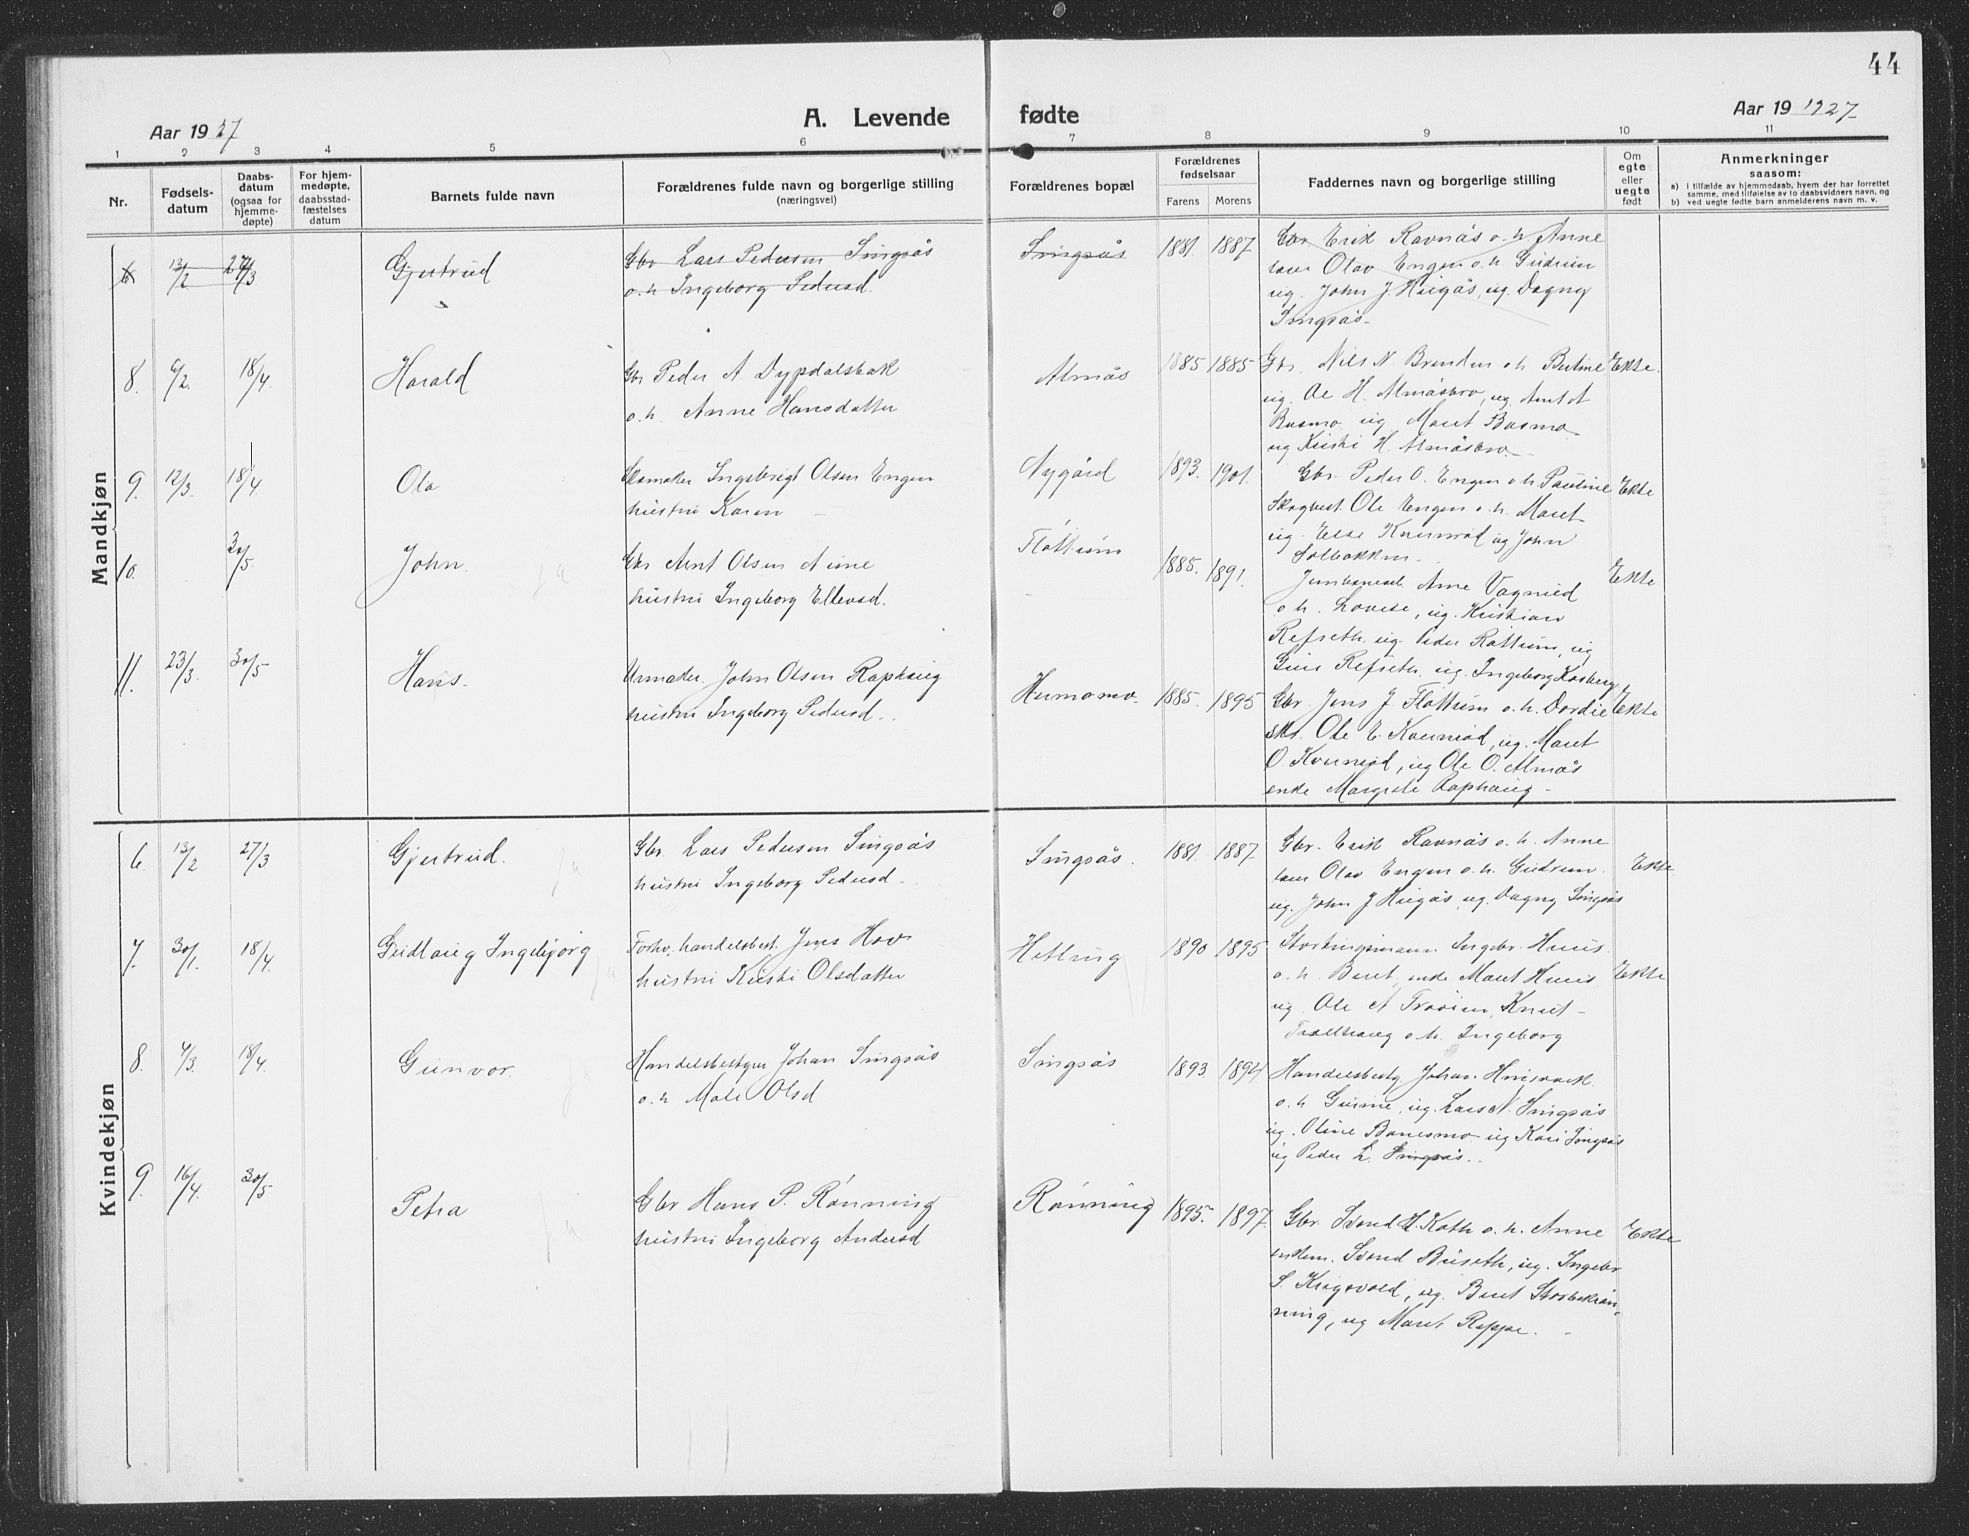 44
Aar 1927
A. Levende fødte
Aar 19 1927
1 2 3 4 5 6 7 8 9 10 11
Nr.
Fødsels-
datum
Daabs-
datum
(ogsaa for
hjemme-
døpte)
For hjem-
medøpte,
daabsstad-
fæstelses
datum
Barnets fulde navn
Forældrenes fulde navn og borgerlige stilling
(næringsvei)
Forældrenes bopæl
Forældrenes
fødselsaar
Farens Morens
Faddernes navn og borgerlige stilling
Om
egte
eller
uegte
født
Anmerkninger
saasom:
a) i tilfælde av hjemmedaab, hvem der har forrettet
samme, med tilføielse av to daabsvidners navn, og
b) ved uegte fødte barn anmelderens navn m. v.
Mandkjøn
6 13/2 27/3 Gjertrud
Gbr Lars Pedersen Singsås
o. h Ingeborg Pedersd.
Singsås 1881. 1887.
Gbr. Erik Ravnås o. h Anne
Olav Engen o. h. Gudrun
ug. John J. Haugås, ug. Dagny
Singsås.
8. 6/2. 18/4. Harald
Gbr Peder A Dypdalsbak
o. h. Anne Hansdatter
Almås 1885 1885
Gbr. Nils N. Brenden o h
Ekte.
ug. Ole H. Almåsbro, ug Arnt A
Busmo, ug Marit Busmo
ug Kristi H. Almåsbro.
9. 12/3. 18/4. Ola
Skomaker Ingebrigt Olsen Engen
hustru Karen
Nygård 1893. 1901.
Gbr. Peder O. Engen o h. Pauline
Ekte
Ole Engen o. h. Marit
ug. Else Kvernrød og John
Solbakken
10. 30/5. John.
Gbr Arnt Olsen Aune
hustru Ingeborg Ellevsd.
Flottum 1885. 1891.
Arne Vagnild
Ekte
o. h. Lovise, ug. Kristian
Refseth, ug. Peder Rottum, ug
Refseth, ug. Ingeborg Kosberg
11. 23/3. 30/5 Hans.
Urmaker. John Olsen Raphaug
hustru Ingeborg Pedersd.
Hermomo. 1885. 1895
Gbr. Jens J. Flottum o. h. Dordie
Ekte
Ole E. Kvernrød, ug. Marit
O Kvernrød, ug Ole O. Almås
enke Margrete Raphaug
Kvindekjøn
6. 13/2 27/3 Gjertrud.
Gbr. Lars Pedersen Singsås
hustru Ingeborg Pedersd.
Singsås. 1881. 1887.
Gbr. Erik Ravnås o. h. Anne
Olav Engen o. h. Gudrun.
Ekte
ug. John J Haugås, ug. Dagny Singsås
7. 30/1. 18/4. Gudlaug Ingebjørg
Forhv. handelsbest. Jens Hov
hustru Kristi Olsdatter
Hetling 1890 1895
Stortingsmann Ingebr. Huus.
o. h. Beret, enke Marit Huus
Ekte
ug. Ole A Troøien, Knut
o. h. Ingeborg
8. 4/3. 18/4. Gunvor.
Handelsbestyrer Johan Singsås
o. h Mali Olsd
Singsås 1893 1894
Handelsbesty Johan
o. h Gurine, ug. Lars N. Singsås
ug. Oline Bonesmo ug Kari Singsås
ug Peder L. Singsås.
9. 16/4. 30/5 Petra
Gbr Hans P. Rønning
hustru Ingeborg Andersd
Rønning 1895. 1897
Gbr. Svend H. Koth o. h. Anne
Ekte
Svend Buseth, ug. Ingebr
S. Krigsvold, ug. Beret Storbekrøn-
ning, ug Marit Reppe.